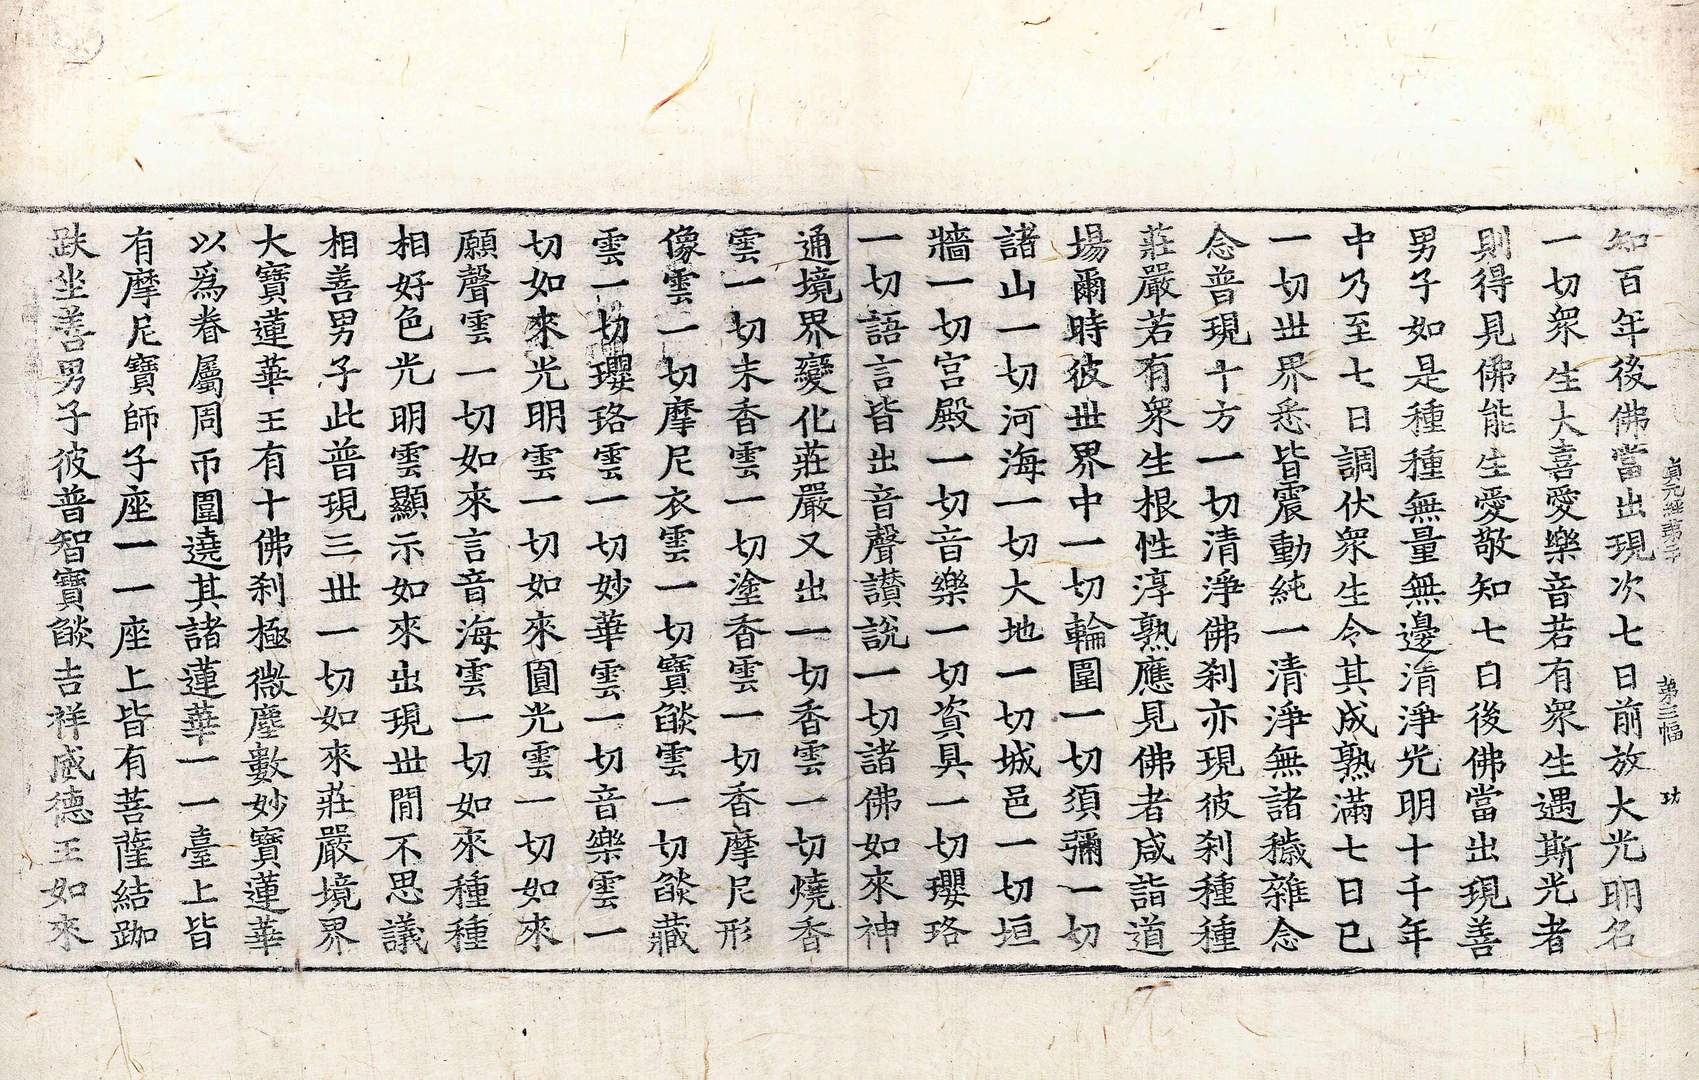 貞元經第二十 第三幅 功
知百年後佛當出現次七日前放大光明名
一切衆生大喜愛樂音若有衆生遇斯光者
則得見佛能生愛敬知七日後佛當出現善
男子如是種種無量無邊淸淨光明十千年
中乃至七日調伏衆生令其成熟滿七日已
一切世界悉皆震動純一清淨無諸穢雜念
念普現十方一切清淨佛刹亦現彼刹種種
莊嚴若有衆生根性淳熟應見佛者咸詣道
場爾時彼世界中一切輪圍一切須彌一切
諸山一切河海一切大地一切城邑一切垣
牆一切宮殿一切音樂一切資具一切瓔珞
一切語言皆出音聲讃說一切諸佛如來神
通境界變化莊嚴又出一切香雲一切燒香
雲一切末香雲一切塗香雲一切香摩尼形
像雲一切摩尼衣雲一切寶燄雲一切燄藏
雲一切瓔珞雲一切妙華雲一切音樂雲一
切如來光明雲一切如來圓光雲一切如來
願聲雲一切如來言音海雲一切如來種種
相好色光明雲顯示如來出現世間不思議
相善男子此普現三世一切如來莊嚴境界
大寶蓮華王有十佛刹極微塵數妙寶蓮華
以爲眷屬周帀圍遶其諸蓮華一一臺上皆
有摩尼寶師子座一一座上皆有菩薩結跏
趺坐善男子彼普智寶燄吉祥威德王如來